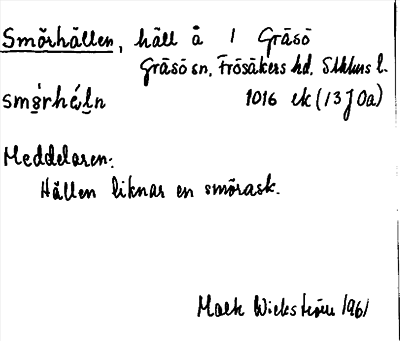 Smörhällen, häll å 1 Gräsö
Gräsö sn, Frösåkers hd, Sthlms l.
1016 ek (13J0a)
Meddelaren:
Hällen liknar en smörask.
Wickström 1961